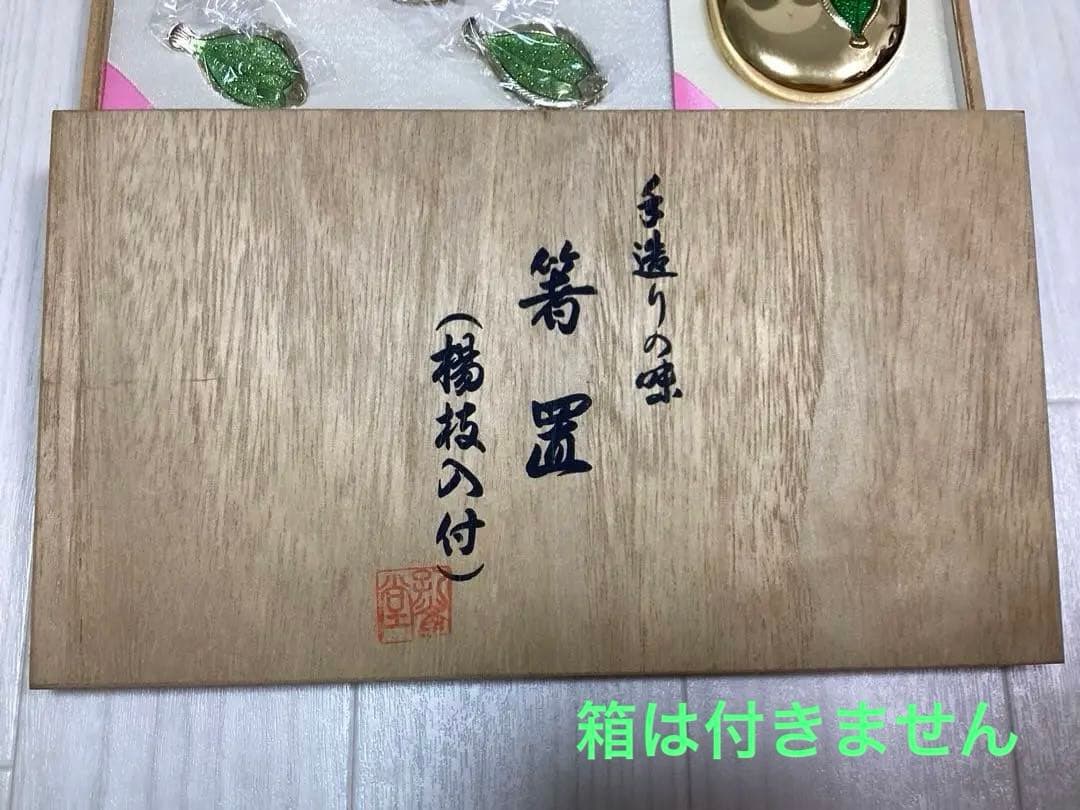 手造りの味
箸置
（楊枝入付）
箱は付きません